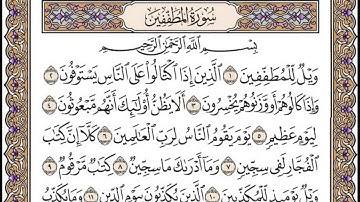 سُورَةُ المُطَفِّفِينَ
بِسْمِ اللَّهِ الرَّحْمَٰنِ الرَّحِيمِ
وَيْلٌ لِّلْمُطَفِّفِينَ ١ الَّذِينَ إِذَا اكْتَالُوا عَلَى النَّاسِ يَسْتَوْفُونَ ٢
وَإِذَا كَالُوهُمْ أَو وَّزَنُوهُمْ يُخْسِرُونَ ٣ أَلَا يَظُنُّ أُولَٰئِكَ أَنَّهُم مَّبْعُوثُونَ ٤
لِيَوْمٍ عَظِيمٍ ٥ يَوْمَ يَقُومُ النَّاسُ لِرَبِّ الْعَالَمِينَ ٦ كَلَّا إِنَّ كِتَابَ
الْفُجَّارِ لَفِي سِجِّينٍ ٧ وَمَا أَدْرَاكَ مَا سِجِّينٌ ٨ كِتَابٌ مَّرْقُومٌ ٩
وَيْلٌ يَوْمَئِذٍ لِّلْمُكَذِّبِينَ ١٠ الَّذِينَ يُكَذِّبُونَ بِيَوْمِ الدِّينِ ١١ وَمَا يُكَذِّبُ